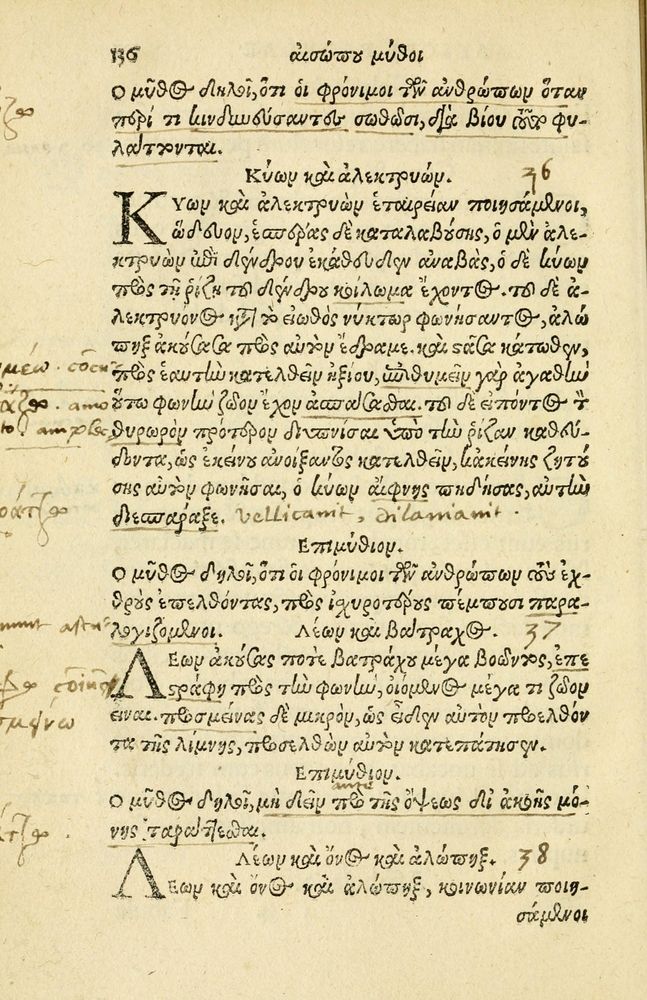 136 αἰσώπου μῦθοι
Ο μῦθος δηλοῖ, ὅτι οἱ φρόνιμοι τῶν ἀνθρώπων ὅταν
περί τι κινδυνεύσαντες σωθῶσι, διὰ βίου αὐτὸ φυ-
λάττονται.
Κύων καὶ ἀλεκτρυών. 36
ΚΥων καὶ ἀλεκτρυὼν ἑταιρείαν ποιησάμενοι,
ὥδευον, ἑσπέρας δὲ καταλαβούσης, ὁ μὲν ἀλε-
κτρυὼν ἐπὶ δένδρου ἐκάθευδεν ἀναβὰς, ὁ δὲ κύων
πρὸς τῇ ῥίζῃ τοῦ δένδρου κοίλωμα ἔχοντος. τοῦ δὲ ἀ-
λεκτρυόνος κατὰ τὸ εἰωθὸς νύκτωρ φωνήσαντος, ἀλώ
πηξ ἀκούσασα πρὸς αὐτὸν ἔδραμε. καὶ στᾶσα κάτωθεν,
πρὸς ἑαυτὴν κατελθεῖν ἠξίου, ἐπιθυμεῖν γὰρ ἀγαθὴν
οὕτω φωνὴν ζῶον ἔχον ἀσπάσασθαι. τοῦ δὲ εἰπόντος τὸ
θυρωρὸν πρότερον διυπνίσαι ὑπὸ τὴν ῥίζαν καθεύ-
δοντα, ὡς ἐκείνου ἀνοίξαντος κατελθεῖν, κἀκείνης ζητού
σης αὐτὸν φωνῆσαι, ὁ κύων αἴφνης πηδήσας, αὐτὴν
διεσπάραξε. vellicavit, dilaniavit.
Επιμύθιον.
Ο μῦθος δηλοῖ, ὅτι οἱ φρόνιμοι τῶν ἀνθρώπων τοὺς ἐχ-
θροὺς ἐπελθόντας, πρὸς ἰσχυροτέρους πέμπουσι παρα-
λογιζόμενοι. Λέων καὶ Βάτραχος. 37
ΛΕων ἀκούσας ποτὲ βατράχου μέγα βοῶντος, ἐπε
στράφη πρὸς τὴν φωνὴν, οἰόμενος μέγα τι ζῶον
εἶναι. προσμείνας δὲ μικρὸν, ὡς εἶδεν αὐτὸν προελθόν
τα τῆς λίμνης, προσελθὼν αὐτὸν κατεπάτησεν.
Επιμύθιον.
Ο μῦθος δηλοῖ, μὴ δεῖν πρὸ τῆς ὄψεως δι' ἀκοῆς μό-
νης ταράττεσθαι.
Λέων καὶ ὄνος καὶ ἀλώπηξ. 38
ΛΕων καὶ ὄνος καὶ ἀλώπηξ, κοινωνίαν ποιη-
σάμενοι